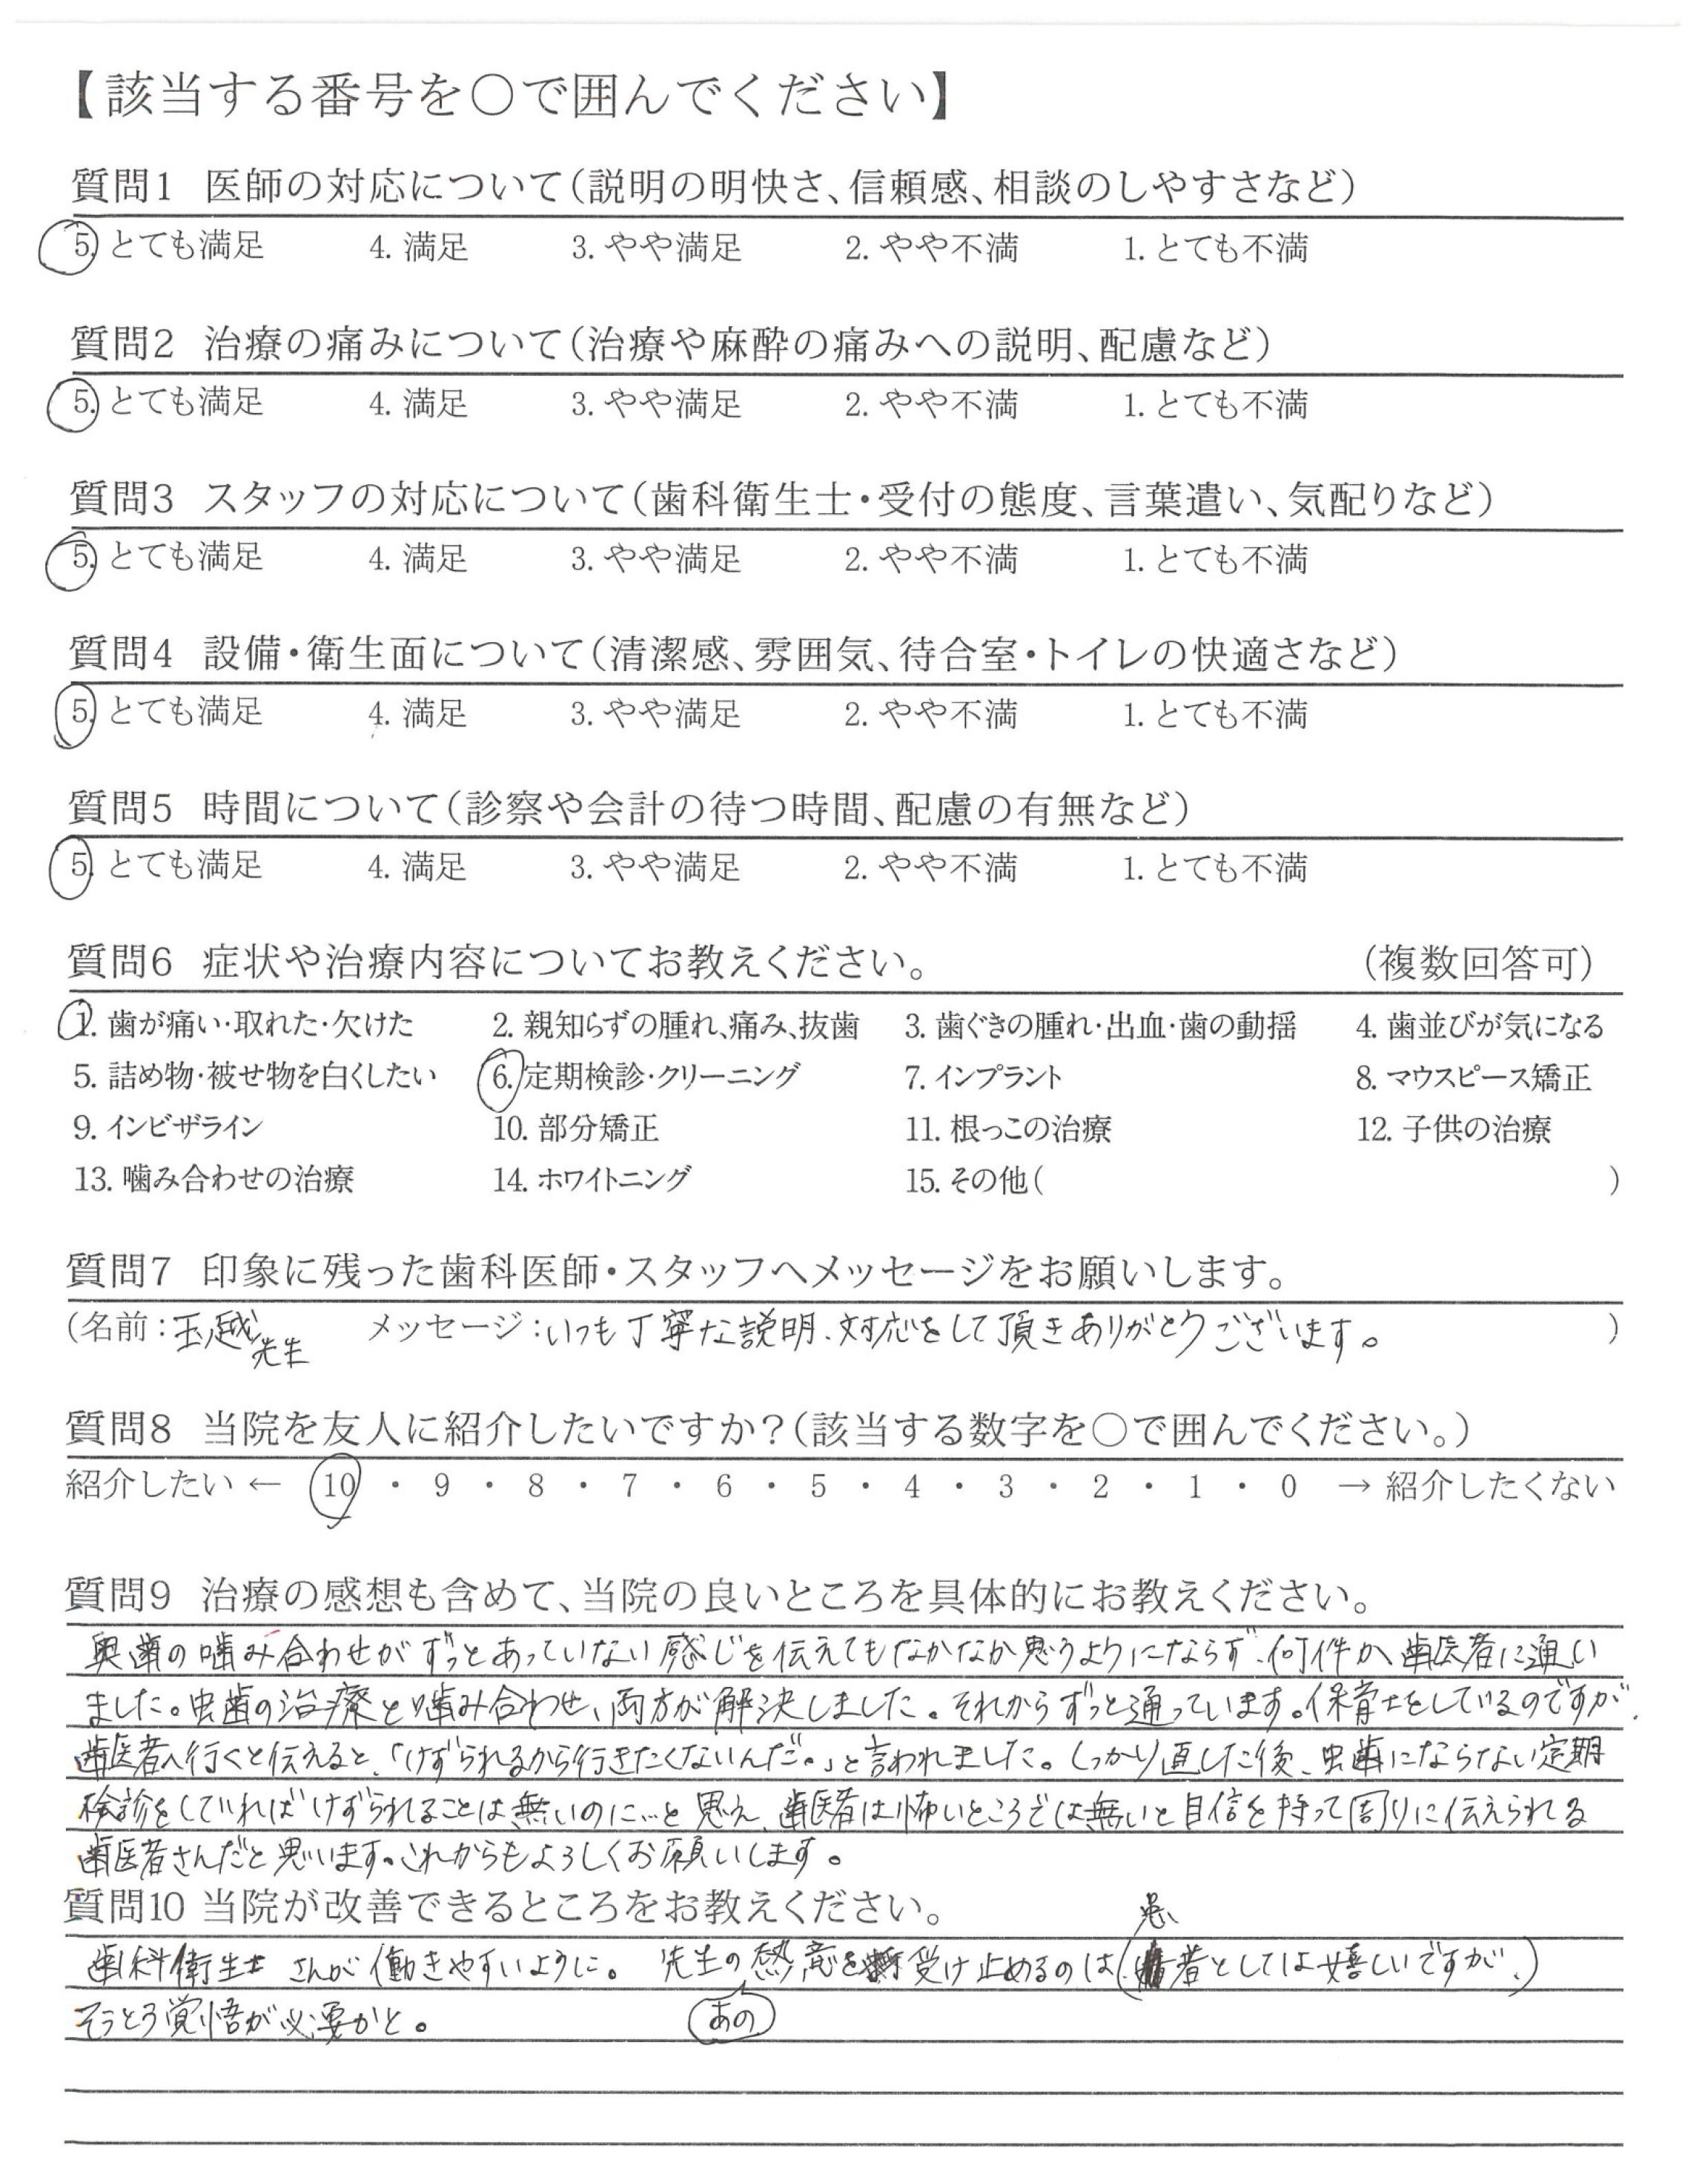 【該当する番号を〇で囲んでください】
質問1 医師の対応について(説明の明快さ、信頼感、相談のしやすさなど)
5. とても満足 4. 満足 3. やや満足 2. やや不満 1. とても不満
質問2 治療の痛みについて(治療や麻酔の痛みへの説明、配慮など)
5. とても満足 4. 満足 3. やや満足 2. やや不満 1. とても不満
質問3 スタッフの対応について(歯科衛生士・受付の態度、言葉遣い、気配りなど)
5. とても満足 4. 満足 3. やや満足 2. やや不満 1. とても不満
質問4 設備・衛生面について(清潔感、雰囲気、待合室・トイレの快適さなど)
5. とても満足 4. 満足 3. やや満足 2. やや不満 1. とても不満
質問5 時間について(診察や会計の待つ時間、配慮の有無など)
5. とても満足 4. 満足 3. やや満足 2. やや不満 1. とても不満
質問6 症状や治療内容についてお教えください。 (複数回答可)
1. 歯が痛い・取れた・欠けた 2. 親知らずの腫れ、痛み、抜歯 3. 歯ぐきの腫れ・出血・歯の動揺 4. 歯並びが気になる
5. 詰め物・被せ物を白くしたい 6. 定期検診・クリーニング 7. インプラント 8. マウスピース矯正
9. インビザライン 10. 部分矯正 11. 根っこの治療 12. 子供の治療
13. 噛み合わせの治療 14. ホワイトニング 15. その他( )
質問7 印象に残った歯科医師・スタッフへメッセージをお願いします。
(名前:玉越先生 メッセージ:いつも丁寧な説明、対応をして頂きありがとうございます。 )
質問8 当院を友人に紹介したいですか?(該当する数字を〇で囲んでください。)
紹介したい ← 10 ・ 9 ・ 8 ・ 7 ・ 6 ・ 5 ・ 4 ・ 3 ・ 2 ・ 1 ・ 0 → 紹介したくない
質問9 治療の感想も含めて、当院の良いところを具体的にお教えください。
奥歯の噛み合わせがずっとあっていない感じを伝えてもなかなか思うようにならず、何件か歯医者に通い
ました。虫歯の治療と噛み合わせ、両方が解決しました。それからずっと通っています。保育士をしているのですが、
歯医者へ行くと伝えると、「けずられるから行きたくないんだ。」と言われました。しっかり直した後、虫歯にならない定期
検診をしていればけずられることは無いのに…と思え、歯医者は怖いところでは無いと自信を持って周りに伝えられる
歯医者さんだと思います。これからもよろしくお願いします。
質問10 当院が改善できるところをお教えください。
歯科衛生士さんが働きやすいように。 先生のあの熱意を受け止めるのは(患者としては嬉しいですが、)
そうとう覚悟が必要かと。